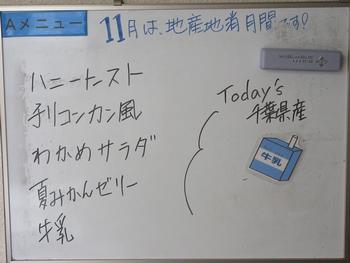 Aメニュー
11月は、地産地消月間です!
ハニートースト
チリコンカン風
わかめサラダ
夏みかんゼリー
牛乳
Today's
千葉県産
牛乳